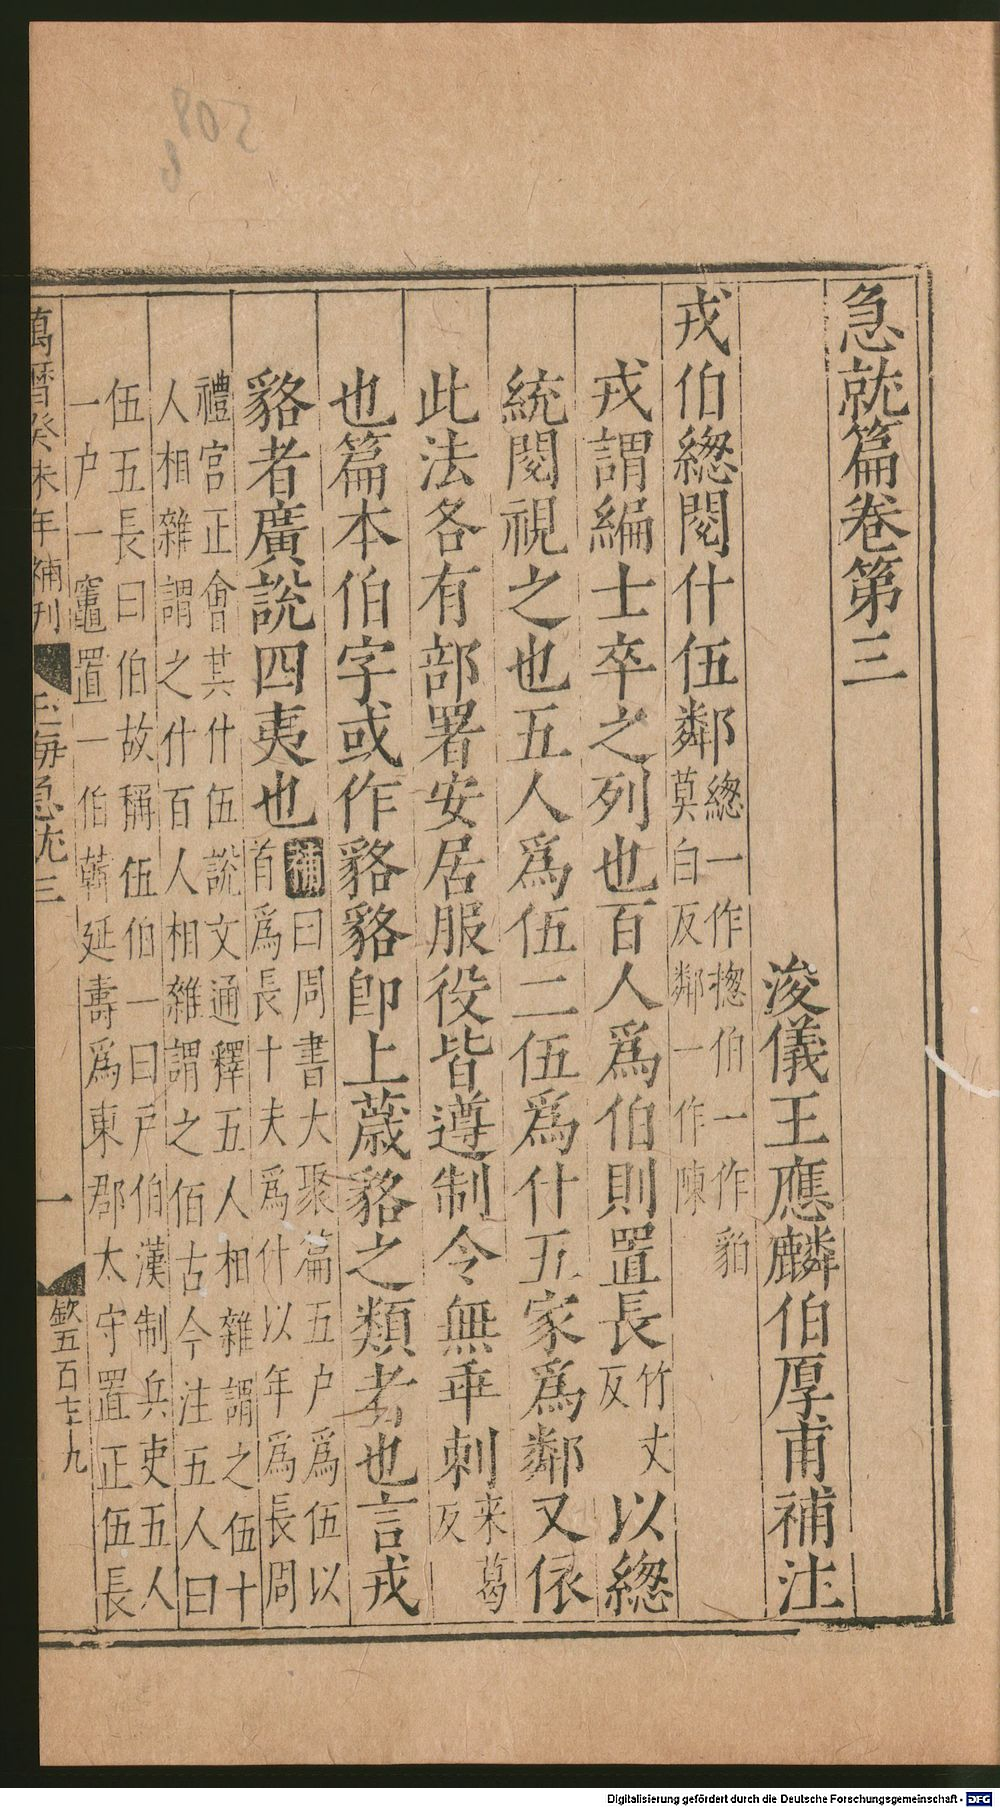 急就篇卷第三
浚儀王應麟伯厚甫補注
戎伯緫閱什伍鄰緫一作摠伯一作貊莫白反鄰一作陳
戎謂編士卒之列也百人爲伯則置長竹丈反以緫
統閱視之也五人爲伍二伍爲什五家爲鄰又依
此法各有部署安居服役皆遵制令無乖剌来葛反
也篇本伯字或作貉貉即上薉貉之類者也言戎
貉者廣説四夷也補曰周書大聚篇五户爲伍以首爲長十夫爲什以年爲長周
禮宮正會其什伍説文通釋五人相雜謂之伍十人相雜謂之什百人相雜謂之佰古今注五人曰
伍五長曰伯故稱伍伯一曰戶伯漢制兵吏五人一户一竈置一伯韓延壽爲東郡太守置正伍長
萬曆癸未年補刊
玉海急就三
一
欽五百七十九
508
Digitalisierung gefördert durch die Deutsche Forschungsgemeinschaft - DFG